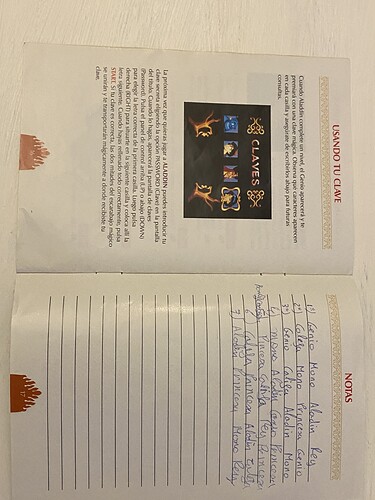 USANDO TU CLAVE
Cuando Aladdin complete un nivel, el Genio aparecerá y te
premiará con una clave mágica. Observa qué caracteres aparecen
en cada casilla y asegúrate de escribirlos abajo para futuras
consultas.
CLAVES
La próxima vez que quieras jugar a ALADDIN puedes introducir tu
clave secreta eligiendo la opción PASSWORD (Clave) en la pantalla
del título. Cuando lo hagas, aparecerá la pantalla de claves
(Password). Pulsa el panel de control arriba (UP) o abajo (DOWN)
para elegir la letra correcta de la primera casilla. Luego pulsa
derecha (RIGHT) para situarte en la siguiente casilla y coloca allí la
letra siguiente. Cuando hayas rellenado todo correctamente, pulsa
START. Si tu clave es correcta, las dos mitades del escarabajo mágico
se unirán y te transportarán mágicamente a donde recibiste tu
clave.
NOTAS
1º) Genio Mono Aladin Rey
2º) Califa Mono Princesa Genio
3º) Genio Califa Aladin Mono
Mono Aladin Genio Princesa
Princesa Califa Rey Princesa
Califa Princesa Aladin
7) Aladin Princesa Mono Rey
17